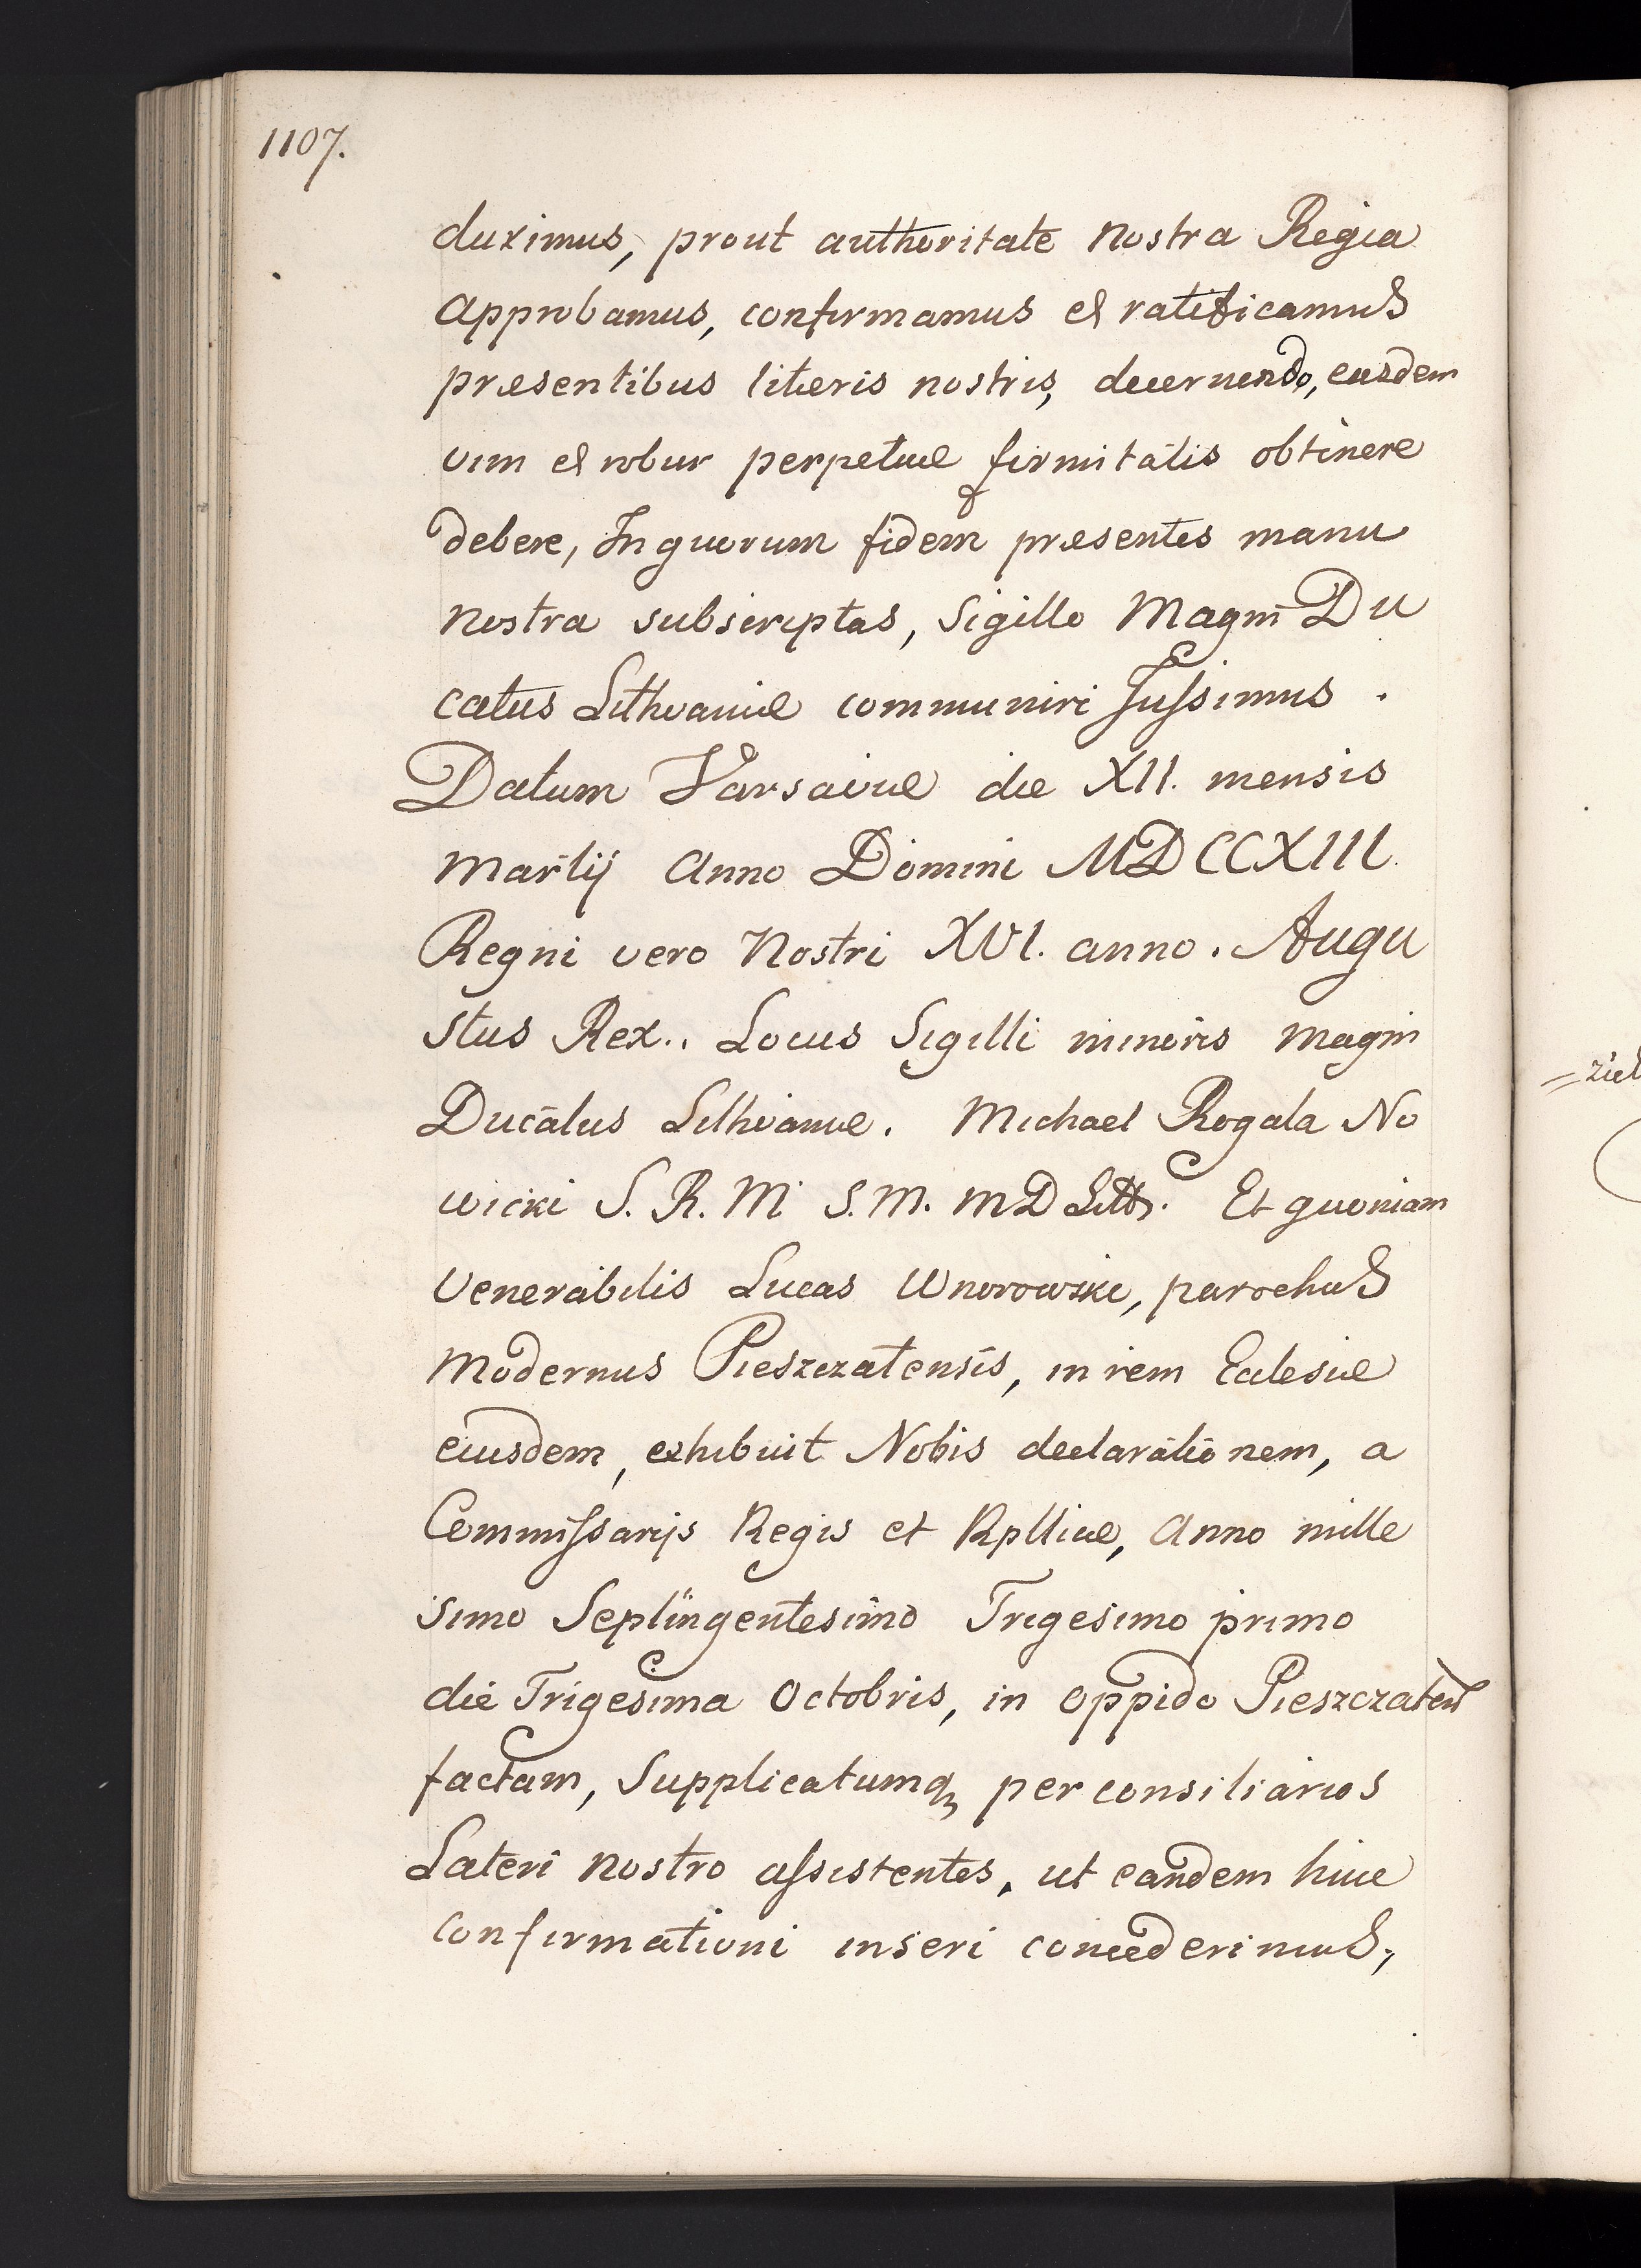 1107.
duximus, prout authoritate nostra Regia
approbamus, confirmamus et ratificamus
præsentibus literis nostris, decernendo, easdem
vim et robur perpetuæ firmitatis obtinere
debere, In quorum fidem præsentes manu
nostra subscriptas, Sigillo Magni Du
catus Lithvaniæ communiri Jussimus.
Datum Varsaviæ die XII. mensis
Martij Anno Domini MDCCXIII.
Regni vero Nostri XVI. anno. Augu
stus Rex.. Locus Sigilli minoris Magni
Ducatus Lithvaniæ. Michael Rogala No
wicki S. R. M S. M. M D Litt. Et quoniam
Venerabilis Lucas Wnorowski, parochus
modernus Pieszczatensis, in rem Ecclesiæ
eiusdem, exhibuit Nobis declarationem, a
Commissarijs Regis et Rpllicæ, Anno mille
simo Septingentesimo Trigesimo primo
die Trigesima Octobris, in oppido Pieszczaten
factam, Supplicatumq per consiliarios
Lateri nostro assistentes, ut eandem huic
confirmationi inseri concederimus,